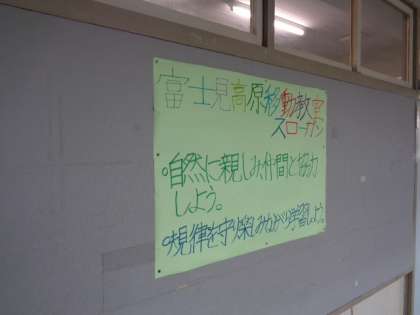 富士見高原移動教室
スローガン
・自然に親しみ仲間と協力
しよう。
・規律を守り楽しみながら学習しよう。